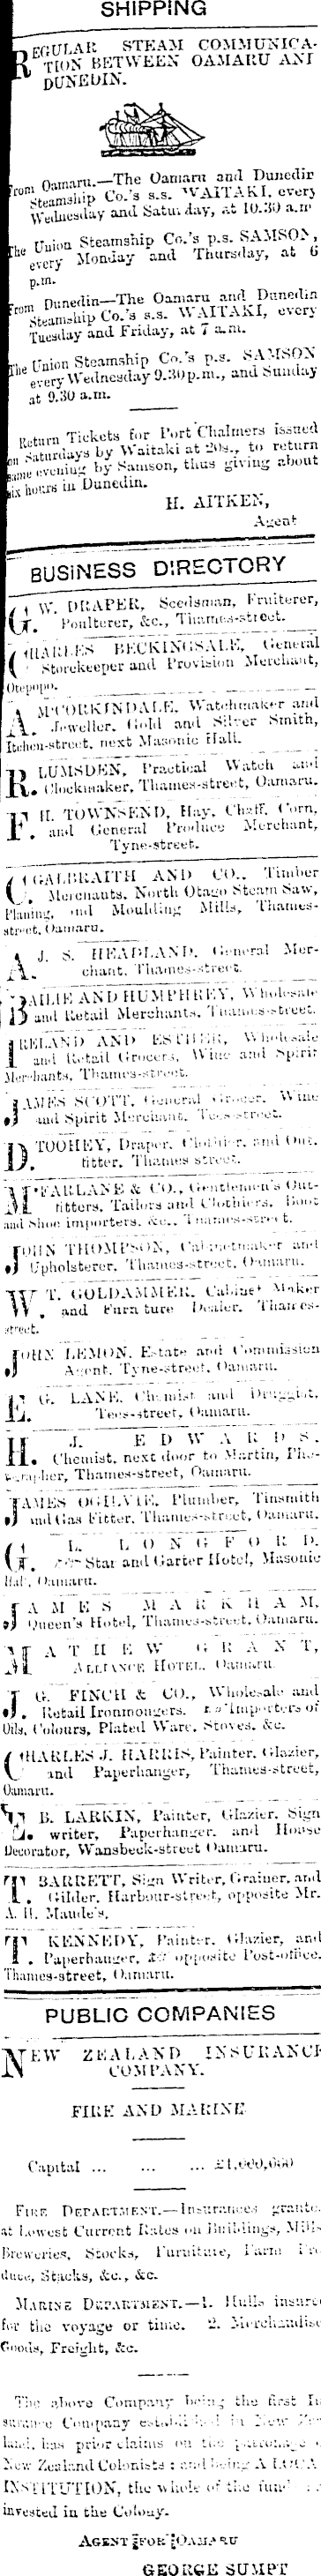 SHIPPING
REGULAR STEAM COMMUNICA-
TION BETWEEN OAMARU AND
DUNEDIN.
From Oamaru.—The Oamaru and Dunedin
Steamship Co.'s s.s. WAITAKI, every
Wednesday and Saturday, at 10.30 a.m
The Union Steamship Co.'s p.s. SAMSON,
every Monday and Thursday, at 6
p.m.
From Dunedin—The Oamaru and Dunedin
Steamship Co.'s s.s. WAITAKI, every
Tuesday and Friday, at 7 a.m.
The Union Steamship Co.'s p.s. SAMSON
every Wednesday 9.30 p.m., and Sunday
at 9.30 a.m.
Return Tickets for Port Chalmers issued
on Saturdays by Waitaki at 20s., to return
same evening by Samson, thus giving about
six hours in Dunedin.
H. AITKEN,
Agent
BUSINESS DIRECTORY
G. W. DRAPER, Seedsman, Fruiterer,
Poulterer, &c., Thames-street.
CHARLES BECKINGSALE, General
Storekeeper and Provision Merchant,
Otepopo.
A. M'CORKINDALE, Watchmaker and
Jeweller. Gold and Silver Smith,
Itchen-street, next Masonic Hall.
R. LUMSDEN, Practical Watch and
Clockmaker, Thames-street, Oamaru.
F. H. TOWNSEND, Hay, Chaff, Corn,
and General Produce Merchant,
Tyne-street.
GALBRAITH AND CO., Timber
Merchants, North Otago Steam Saw,
Planing, and Moulding Mills, Thames-
street, Oamaru.
A. J. S. HEADLAND, General Mer-
chant, Thames-street.
BAILIE AND HUMPHREY, Wholesale
and Retail Merchants, Thames-street.
IRELAND AND ESTHER, Wholesale
and Retail Grocers, Wine and Spirit
Merchants, Thames-street.
JAMES SCOTT, General Grocer, Wine
and Spirit Merchant, Tees-street.
D. TOOHEY, Draper, Clothier, and Out-
fitter, Thames street.
M'FARLANE & CO., Gentlemen's Out-
fitters, Tailors and Clothiers, Boot
and Shoe importers, &c., Thames-street.
JOHN THOMPSON, Cabinetmaker and
Upholsterer, Thames-street, Oamaru.
W. T. GOLDAMMER, Cabinet Maker
and Furniture Dealer, Thames-
street.
JOHN LEMON, Estate and Commission
Agent, Tyne-street, Oamaru.
E. G. LANE, Chemist and Druggist,
Tees-street, Oamaru.
H. J. EDWARDS,
Chemist, next door to Martin, Pho-
tographer, Thames-street, Oamaru.
JAMES OGILVIE, Plumber, Tinsmith
and Gas Fitter, Thames-street, Oamaru.
G. L. LONGFORD,
Star and Garter Hotel, Masonic
Hall, Oamaru.
JAMES MARKHAM,
Queen's Hotel, Thames-street, Oamaru.
MATHEW GRANT,
ALLIANCE HOTEL, Oamaru.
J. G. FINCH & CO., Wholesale and
Retail Ironmongers. Importers of
Oils, Colours, Plated Ware, Stoves, &c.
CHARLES J. HARRIS, Painter, Glazier,
and Paperhanger, Thames-street,
Oamaru.
E. B. LARKIN, Painter, Glazier, Sign
writer, Paperhanger, and House
Decorator, Wansbeck-street Oamaru.
T. BARRETT, Sign Writer, Grainer, and
Gilder, Harbour-street, opposite Mr.
A. H. Maude's.
T. KENNEDY, Painter, Glazier, and
Paperhanger, &c opposite Post-office.
Thames-street, Oamaru.
PUBLIC COMPANIES
NEW ZEALAND INSURANCE
COMPANY.
FIRE AND MARINE
Capital ... ... ... £1,000,000
FIRE DEPARTMENT.—Insurances grante
at Lowest Current Rates on Buildings, Mills
Breweries, Stocks, Furniture, Farm Pro
duce, Stacks, &c., &c.
MARINE DEPARTMENT.—1. Hulls insure
for the voyage or time. 2. Merchandise
Goods, Freight, &c.
The above Company being the first In
surance Company established in New Zea
land, has prior claims on the patronage
New Zealand Colonists: and being A LOCAL
INSTITUTION, the whole of the fund
invested in the Colony.
AGENT FOR OAMARU
GEORGE SUMPT